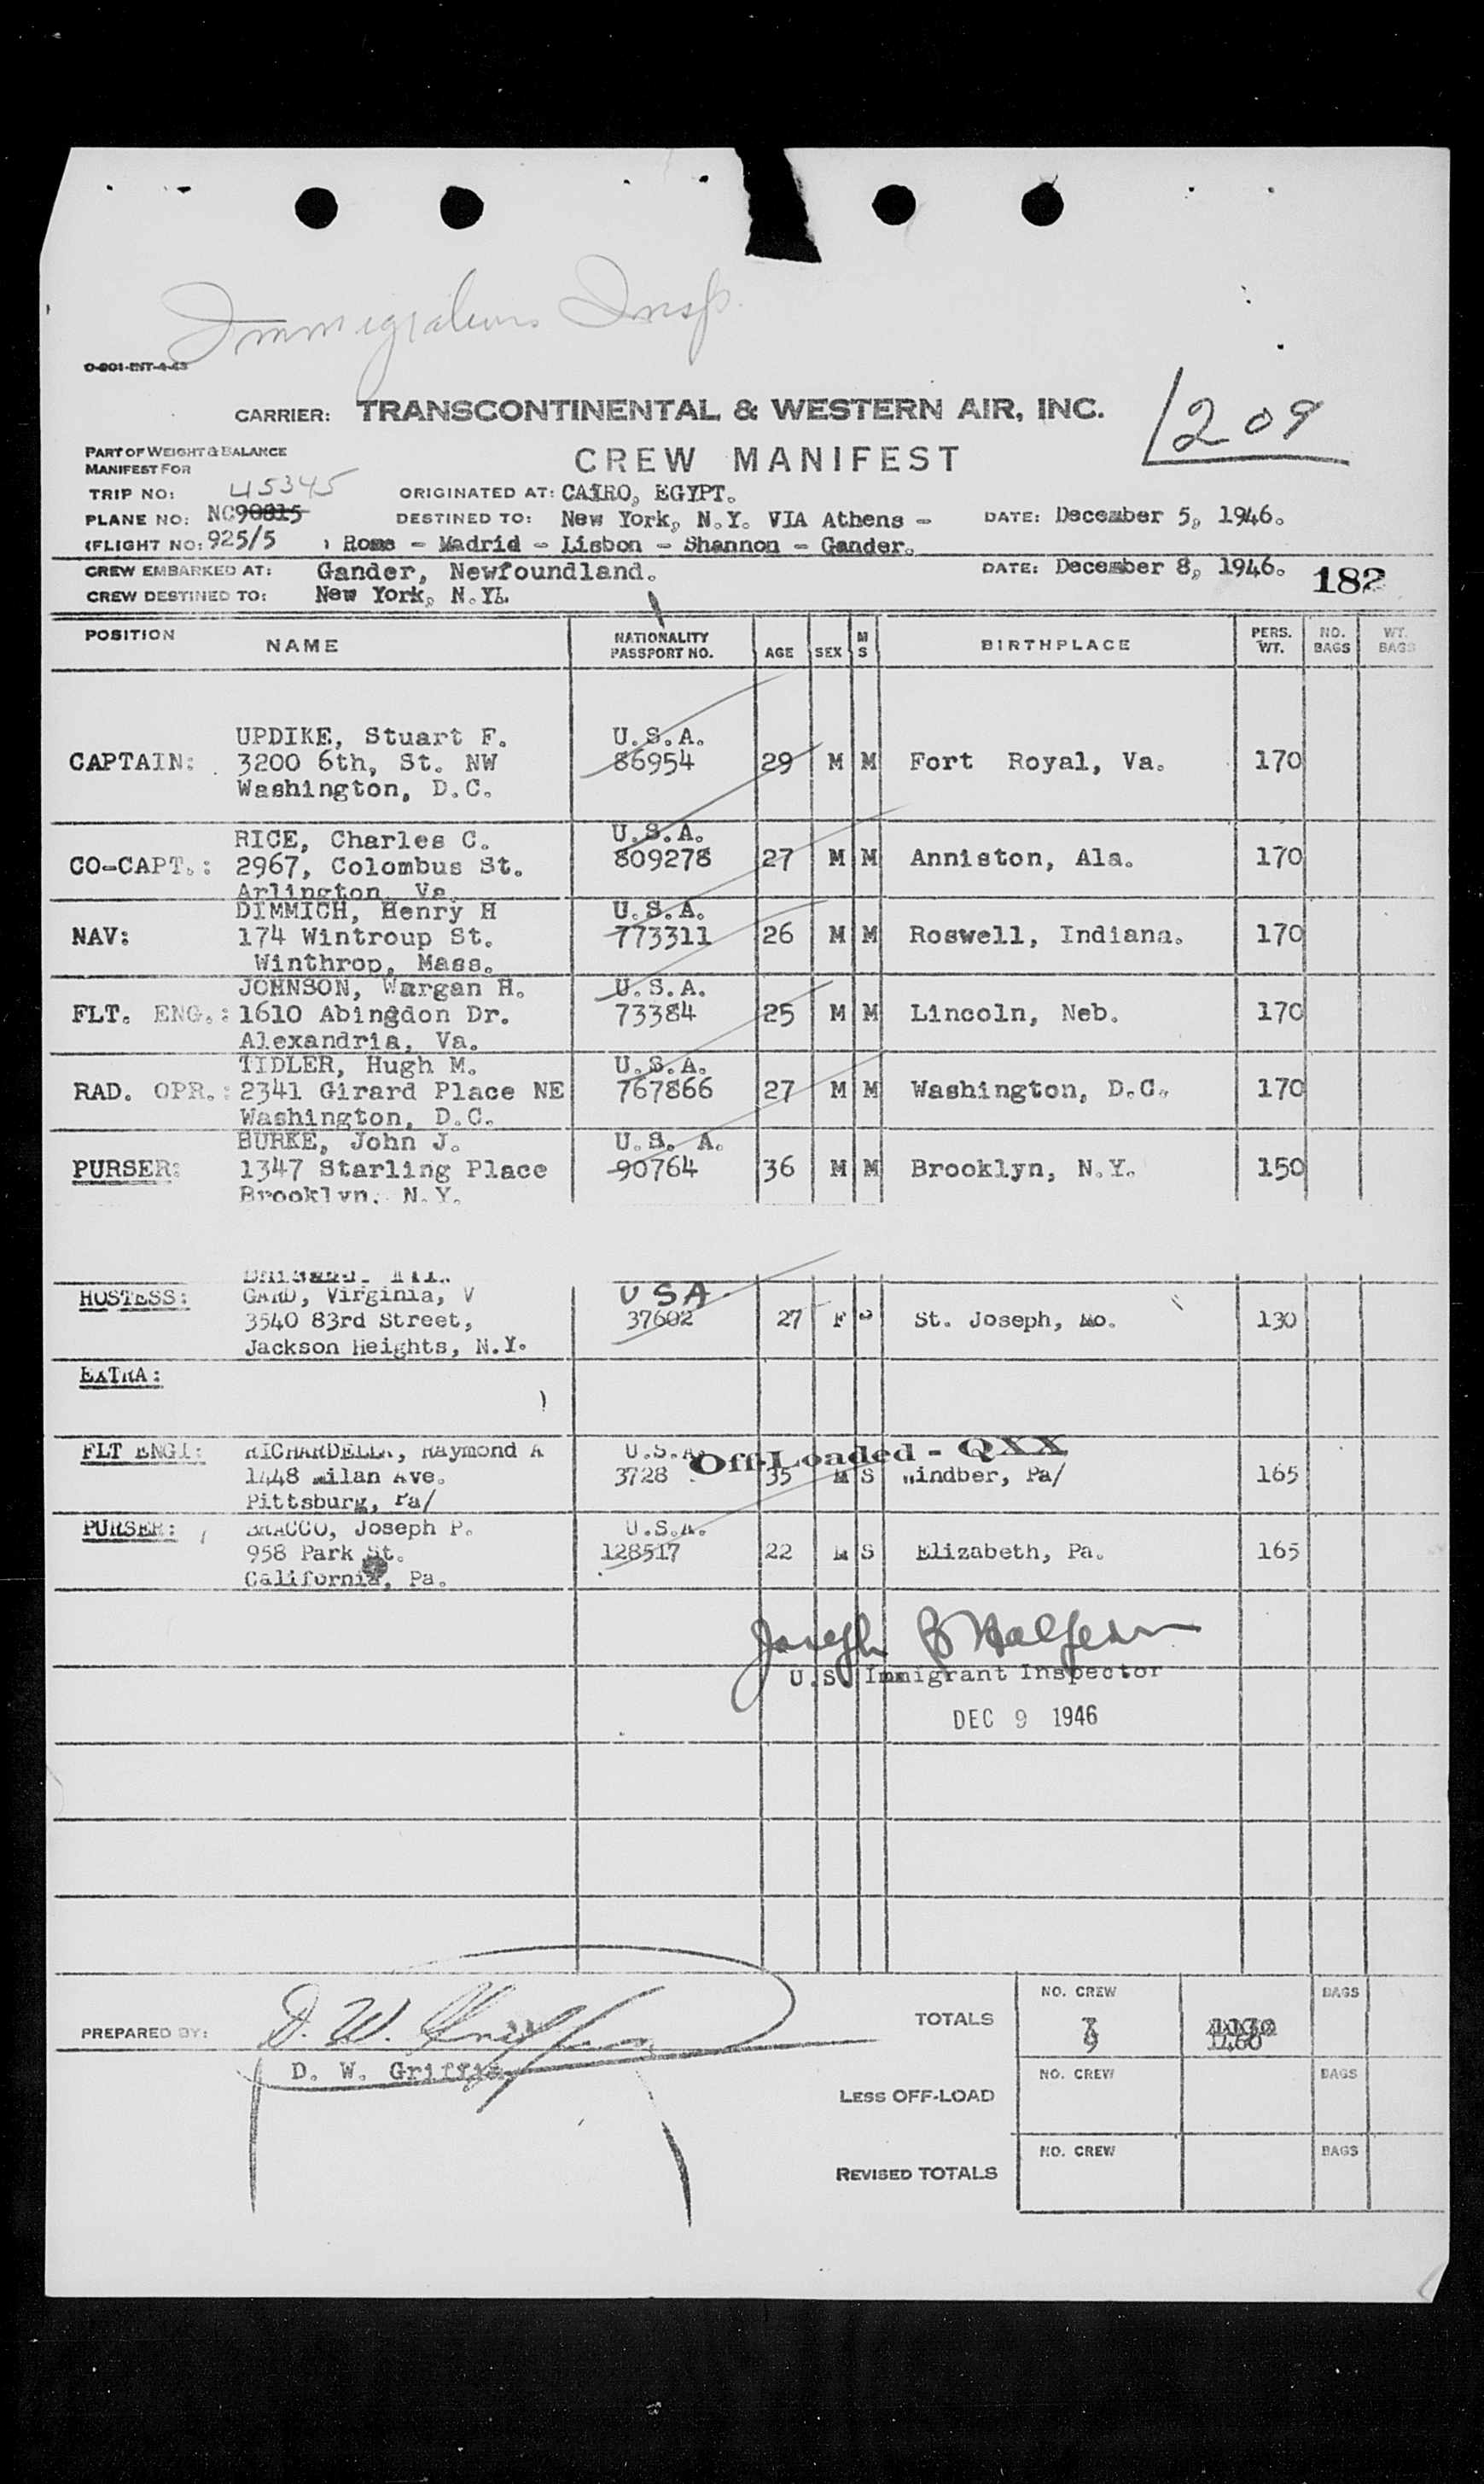 Immigration Insp.
O-801-INT-4-45
CARRIER: TRANSCONTINENTAL & WESTERN AIR, INC.
1209
PART OF WEIGHT & BALANCE
MANIFEST FOR
CREW MANIFEST
TRIP NO: 45345 ORIGINATED AT: CAIRO, EGYPT.
PLANE NO: NC90815 DESTINED TO: New York, N.Y. VIA Athens - DATE: December 5, 1946.
(FLIGHT NO: 925/5 ) Rome - Madrid - Lisbon - Shannon - Gander.
CREW EMBARKED AT: Gander, Newfoundland. DATE: December 8, 1946. 182
CREW DESTINED TO: New York, N.Y.
POSITION NAME NATIONALITY PASSPORT NO. AGE SEX M S BIRTHPLACE PERS. WT. NO. BAGS WT. BAGS
UPDIKE, Stuart F. U.S.A.
CAPTAIN: 3200 6th, St. NW 86954 29 M M Fort Royal, Va. 170
Washington, D.C.
RICE, Charles C. U.S.A.
CO-CAPT.: 2967, Colombus St. 809278 27 M M Anniston, Ala. 170
Arlington, Va.
DIMMICH, Henry H U.S.A.
NAV: 174 Wintroup St. 773311 26 M M Roswell, Indiana. 170
Winthrop, Mass.
JOHNSON, Wargan H. U.S.A.
FLT. ENG.: 1610 Abingdon Dr. 73384 25 M M Lincoln, Neb. 170
Alexandria, Va.
TIDLER, Hugh M. U.S.A.
RAD. OPR.: 2341 Girard Place NE 767866 27 M M Washington, D.C. 170
Washington, D.C.
BURKE, John J. U.S. A.
PURSER: 1347 Starling Place 90764 36 M M Brooklyn, N.Y. 150
Brooklyn, N.Y.
HOSTESS: GARD, Virginia, V USA.
3540 83rd Street, 37602 27 F S St. Joseph, Mo. 130
Jackson Heights, N.Y.
EXTRA:
FLT ENGI: RICHARDELLA, Raymond A U.S.A. Off-Loaded - QXX
1448 Milan Ave. 3728 35 M S Windber, Pa/ 165
Pittsburg, Pa/
PURSER: BRACCO, Joseph P. U.S.A.
958 Park St. 128517 22 M S Elizabeth, Pa. 165
California, Pa.
U.S. Immigrant Inspector
DEC 9 1946
NO. CREW BAGS
PREPARED BY: D. W. Griffin TOTALS 9 1460
D. W. Griffin
NO. CREW BAGS
LESS OFF-LOAD
NO. CREW BAGS
REVISED TOTALS